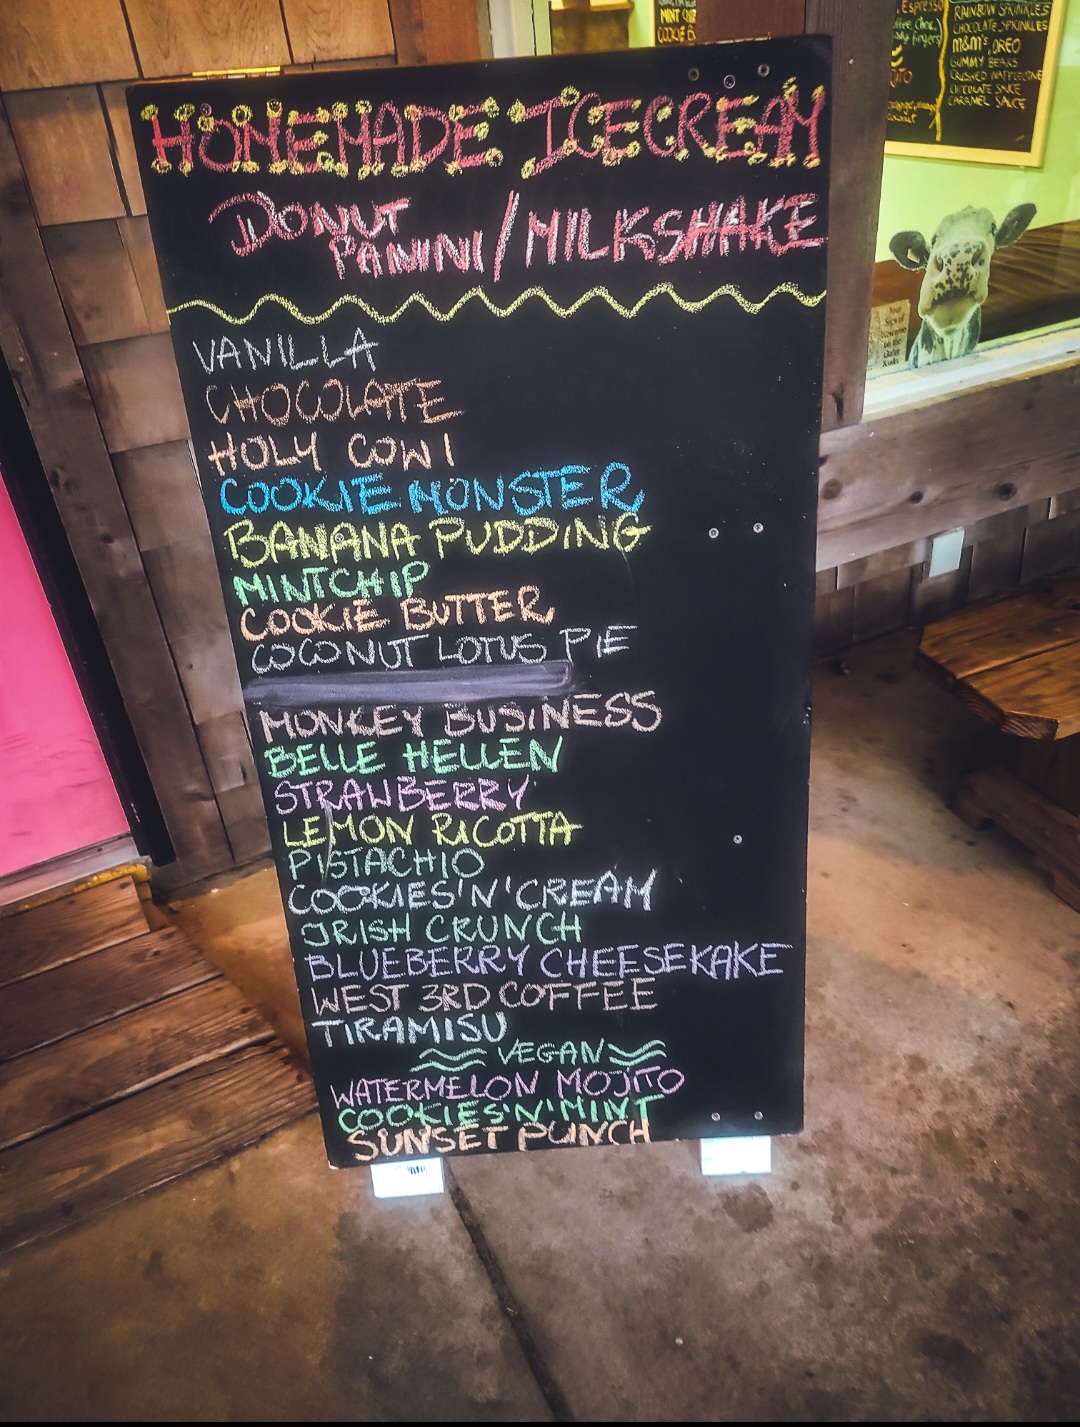 HOMEMADE ICECREAM
DONUT
PANINI/MILKSHAKE
VANILLA
CHOCOLATE
HOLY COW!
COOKIE MONSTER
BANANA PUDDING
MINTCHIP
COOKIE BUTTER
COCONUT LOTUS PIE
MONKEY BUSINESS
BELLE HELLEN
STRAWBERRY
LEMON RICOTTA
PISTACHIO
COOKIES'N'CREAM
IRISH CRUNCH
BLUEBERRY CHEESEKAKE
WEST 3RD COFFEE
TIRAMISU
VEGAN
WATERMELON MOJITO
COOKIES'N'MINT
SUNSET PUNCH
MINT CHIP
ESPRESSO
RAINBOW SPRINKLES
CHOCOLATE SPRINKLES
M&M'S OREO
GUMMY BEARS
CRUSHED WAFFLECONE
CHOCOLATE SAUCE
CARAMEL SAUCE